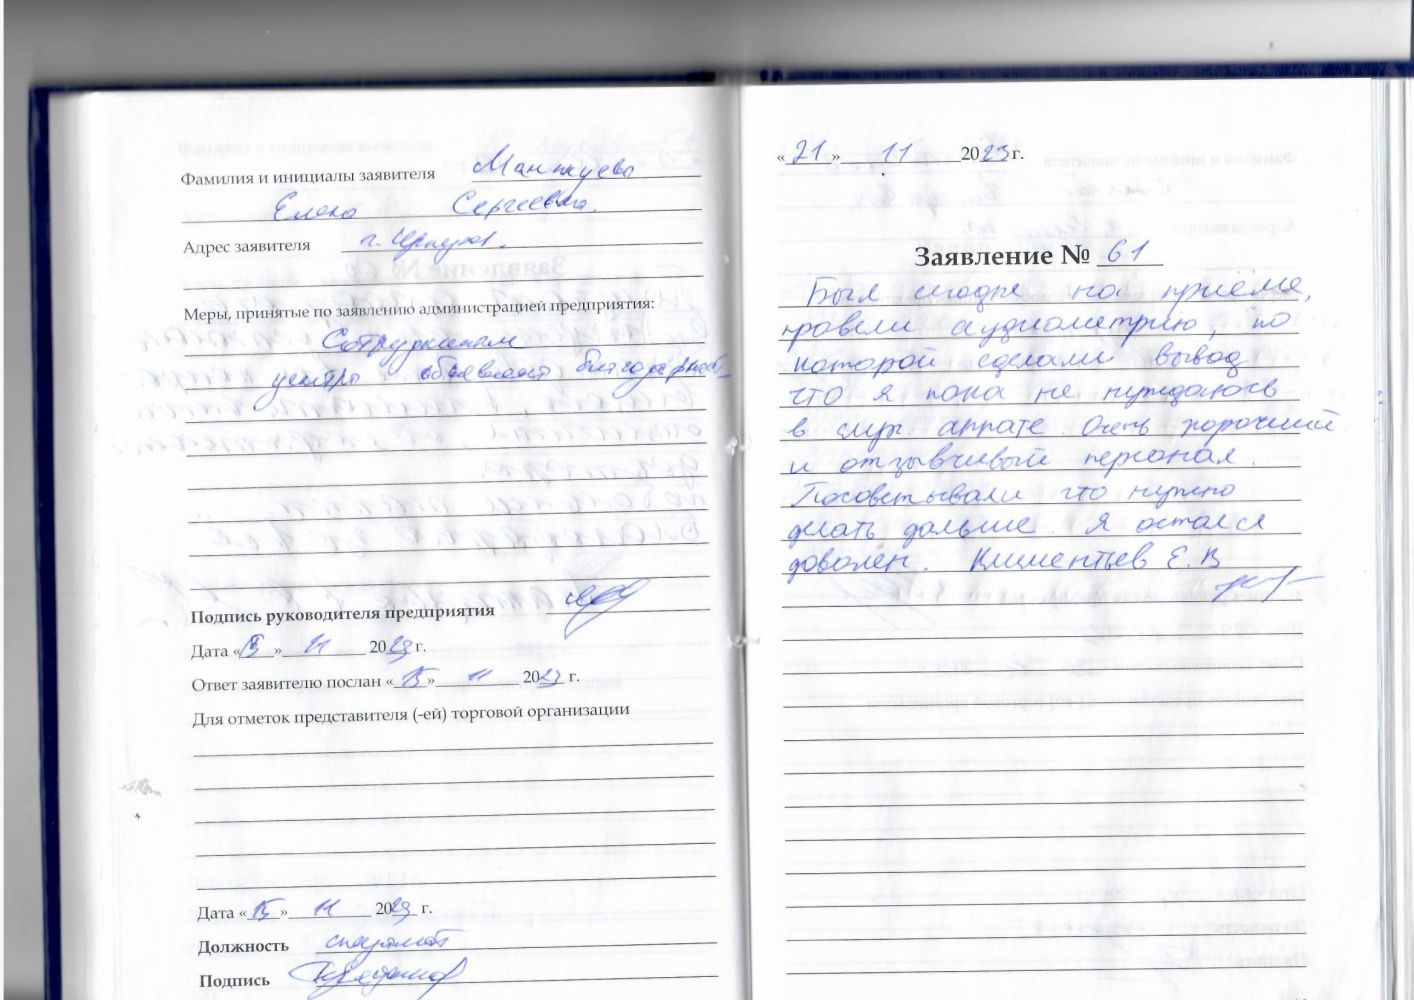 Фамилия и инициалы заявителя
Елена Сергеевна.
Адрес заявителя г. Серпухов.
Меры, принятые по заявлению администрацией предприятия:
Сотрудникам
центра объявлена благодарность
Подпись руководителя предприятия
Дата «15» 11 2023 г.
Ответ заявителю послан «15» 11 2023 г.
Для отметок представителя (-ей) торговой организации
Дата «15» 11 2023 г.
Должность специалист
Подпись
«21» 11 2023 г.
Заявление № 61
Был сегодня на приёме,
провели аудиометрию, по
которой сделали вывод
что я пока не нуждаюсь
в слух аппрате. Очень хороший
и отзывчивый персонал.
Посоветывали что нужно
делать дальше. Я остался
доволен. Климентьев Е.В